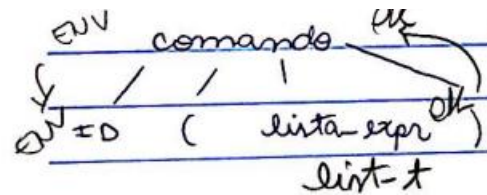 ENV comando
ENV ID ( lista-expr )
list-t